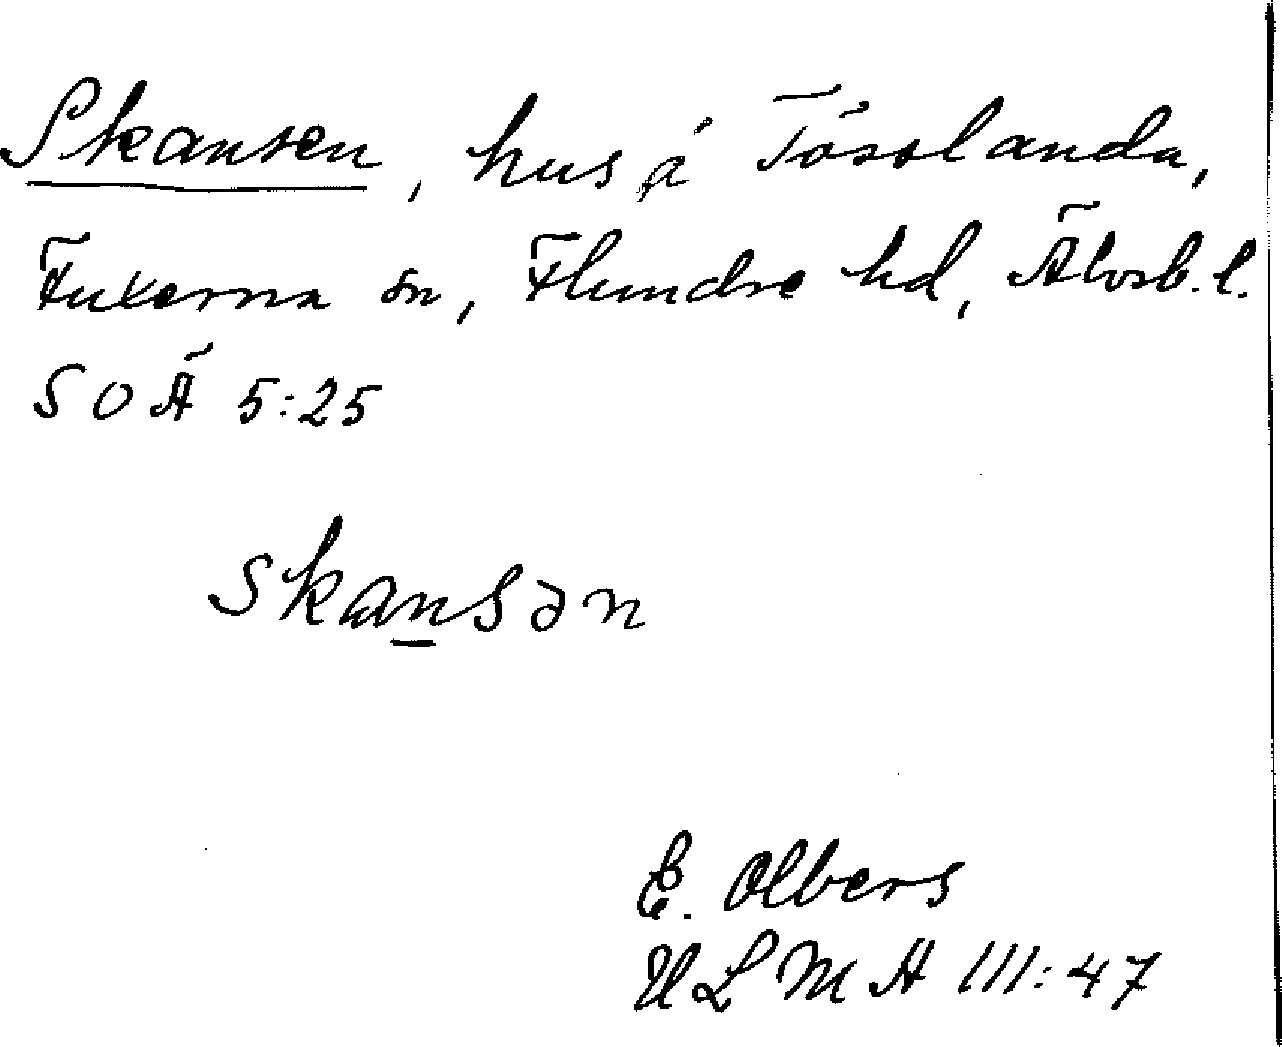 Skansen, hus å Tösslanda,
Fuxerna sn, Flundre hd, Älvsb. l.
SOÄ 5:25
skan̲sən
E. Olbers
ULMA 111:47